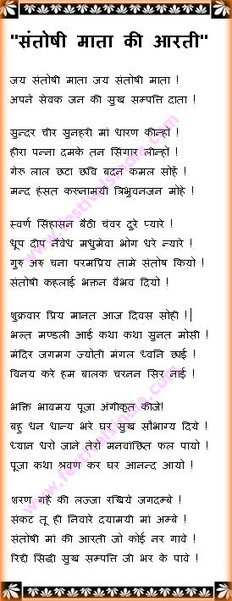 "संतोषी माता की आरती"
जय संतोषी माता जय संतोषी माता !
अपने सेवक जन की सुख सम्पत्ति दाता !
सुन्दर चीर सुनहरी मां धारण कीन्हों !
हीरा पन्ना दमके तन सिंगार लीन्हों !
गेरु लाल छटा छवि बदन कमल सोहे !
मन्द हंसत करुनामयी त्रिभुवनजन मोहे !
स्वर्ण सिंहासन बैठी चंवर दुरे प्यारे !
धूप दीप नैवेध मधुमेवा भोग धरे न्यारे !
गुरु अरु चना परमप्रिय तामे संतोष कियो !
संतोषी कहलाई भक्तन वैभव दियो !
शुक्रवार प्रिय मानत आज दिवस सोही !
भल्त मण्डली आई कथा कथा सुनत मोसी !
मंदिर जगमग ज्योती मंगल ध्वनि छाई !
विनय करे हम बालक चरनन सिर नाई !
भक्ति भावमय पूजा अंगीकृत कीजे!
बहु धन धान्य भरे घर सुख सौभाग्य दिये !
ध्यान धरो जाने तेरो मनवांछित फल पायो !
पूजा कथा श्रवण कर घर आनन्द आयो !
शरण गहै की लज्जा रखिये जगदम्बे !
संकट तू ही निवारे दयामयी मां अम्बे !
संतोषी मां की आरती जो कोई नर गावे !
रिद्दी सिद्धी सुख सम्पत्ति जी भर के पावे !